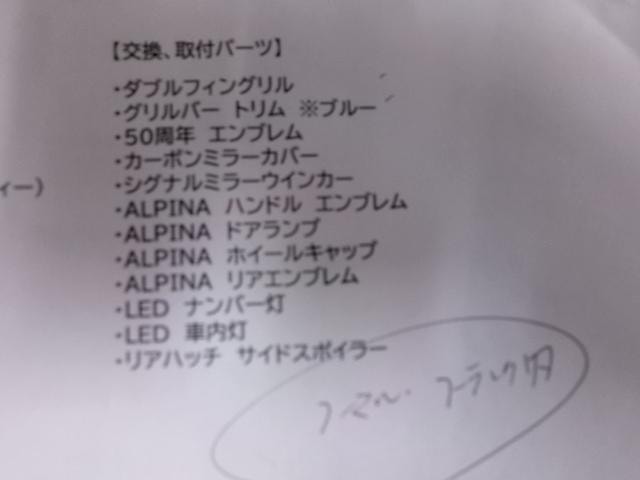 【交換、取付パーツ】
・ダブルフィングリル
・グリルバー トリム ※ブルー
・50周年 エンブレム
・カーボンミラーカバー
ィー）
・シグナルミラーウインカー
・ALPINA ハンドル エンブレム
・ALPINA ドアランプ
・ALPINA ホイールキャップ
・ALPINA リアエンブレム
・LED ナンバー灯
・LED 車内灯
・リアハッチ サイドスポイラー